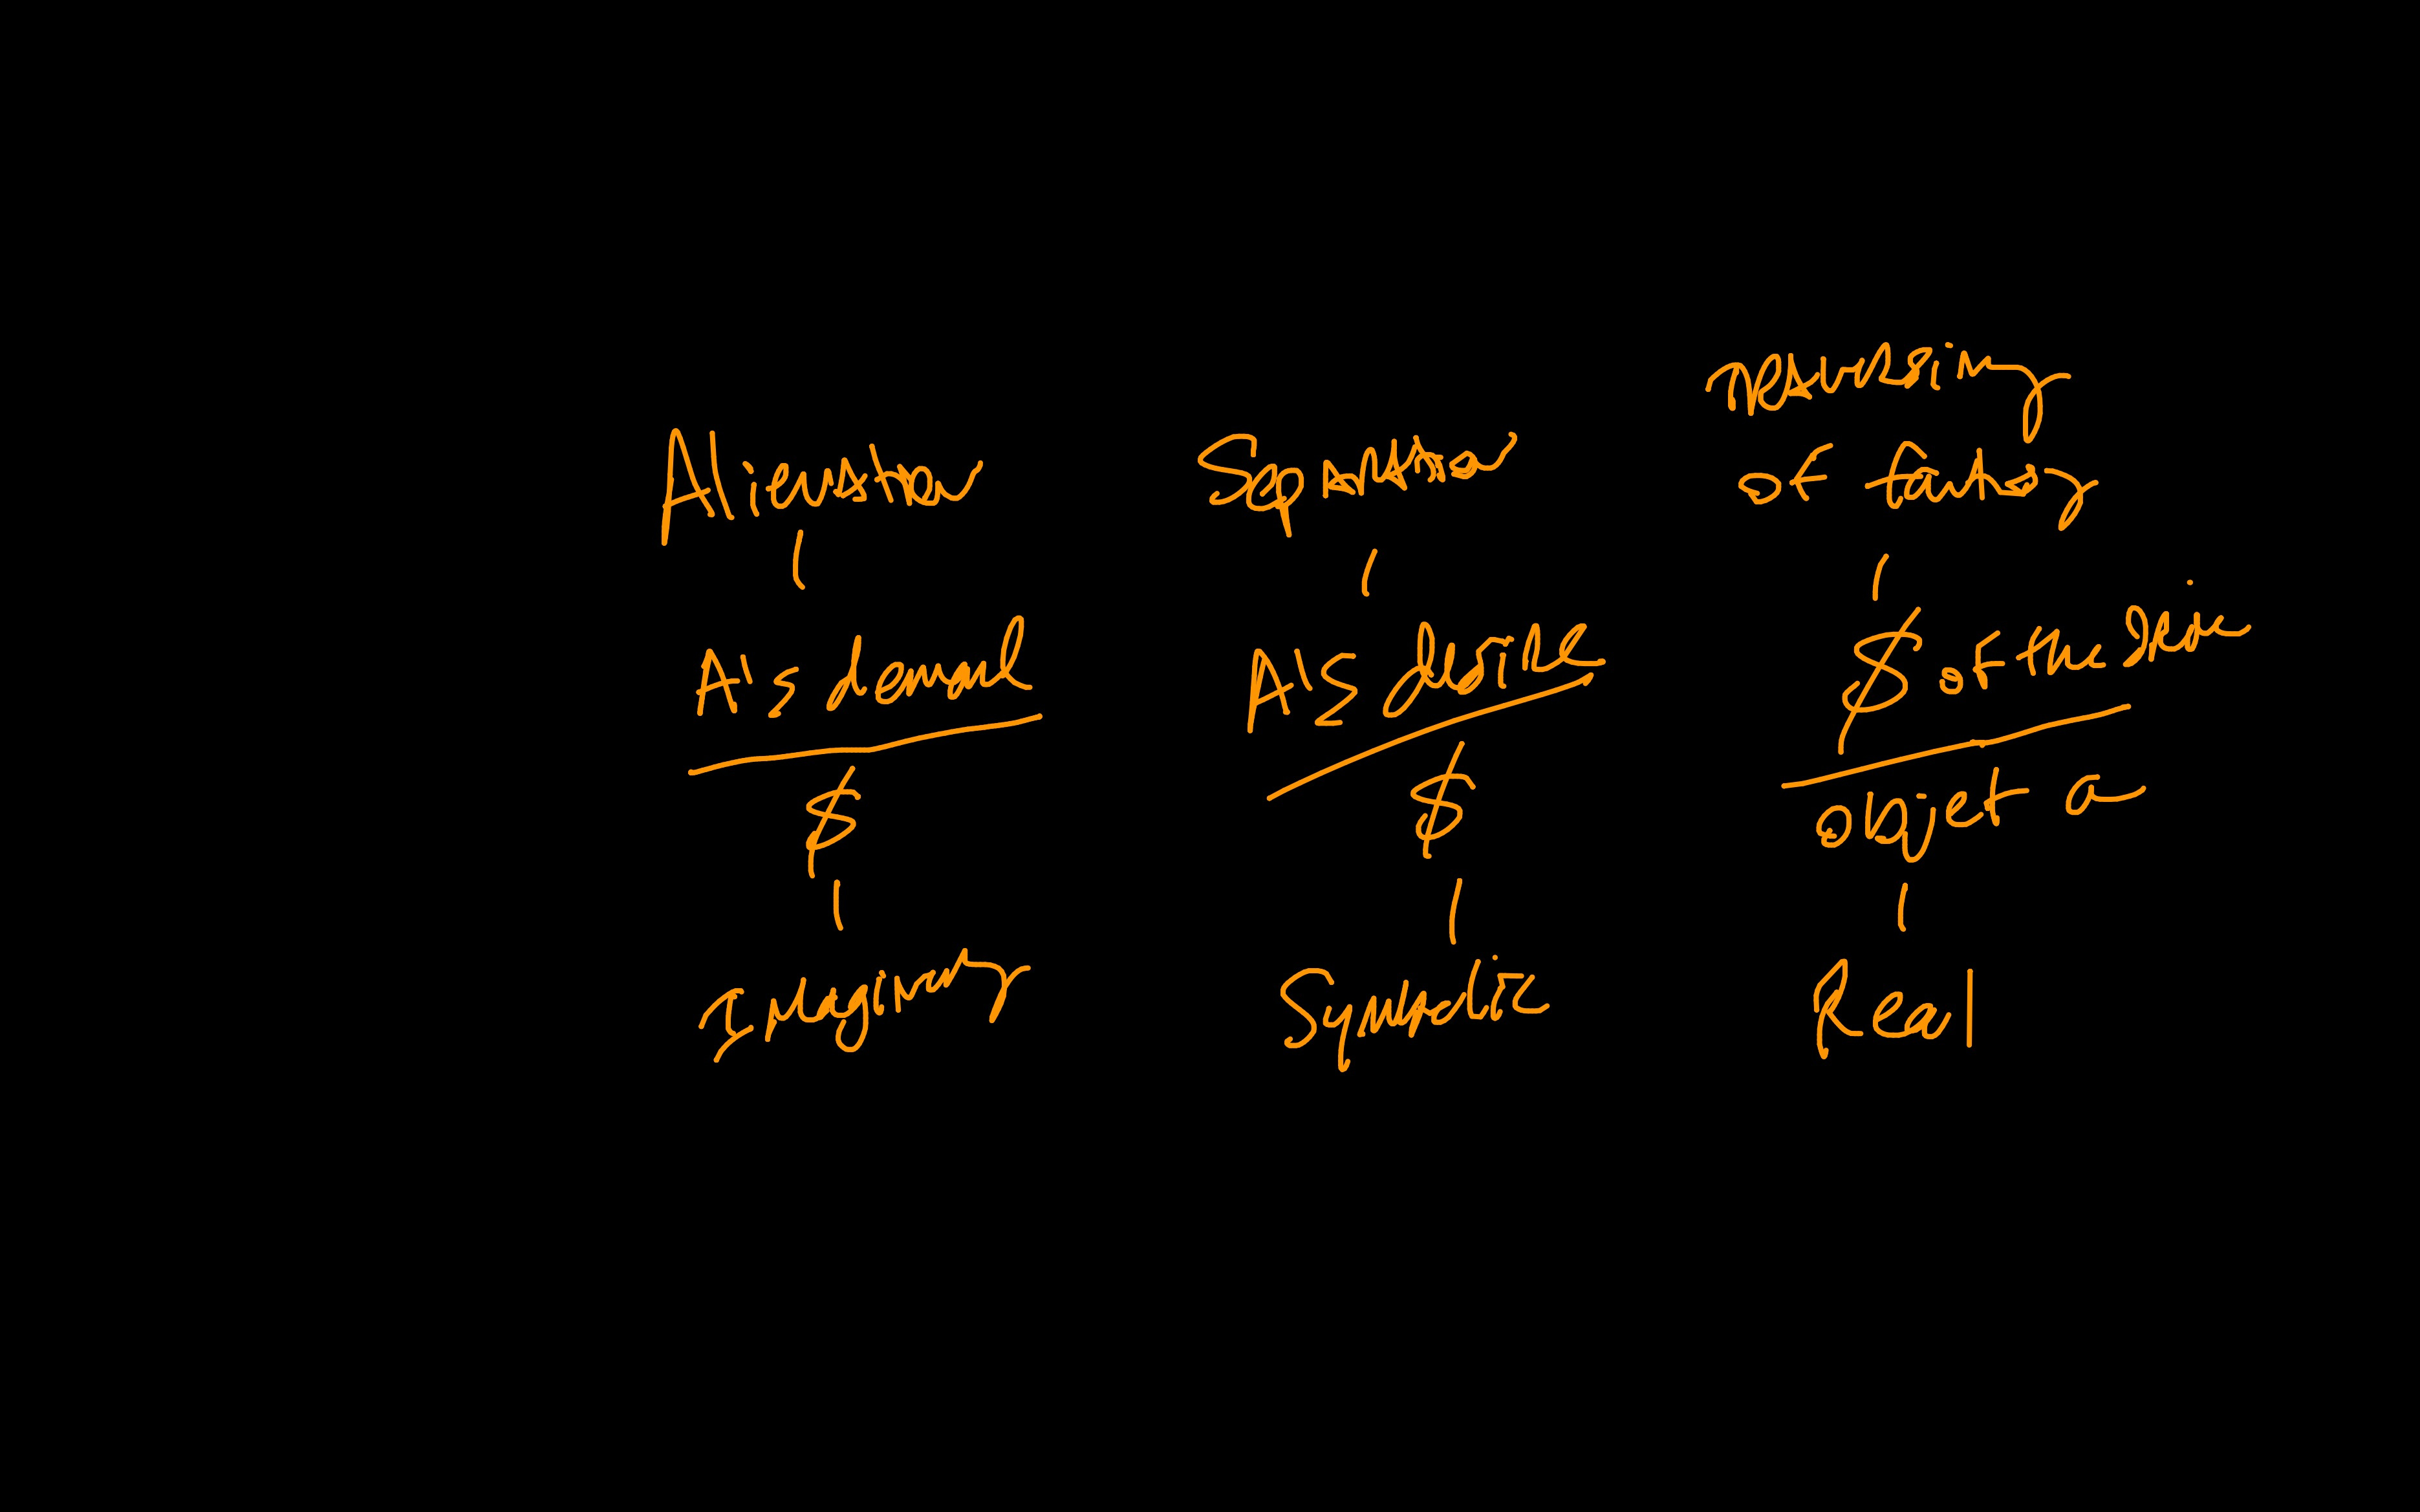 Alienation
A's demand
$
Imaginary
Separation
A's desire
$
Symbolic
traversing
of fantasy
$ of the drive
objet a
Real